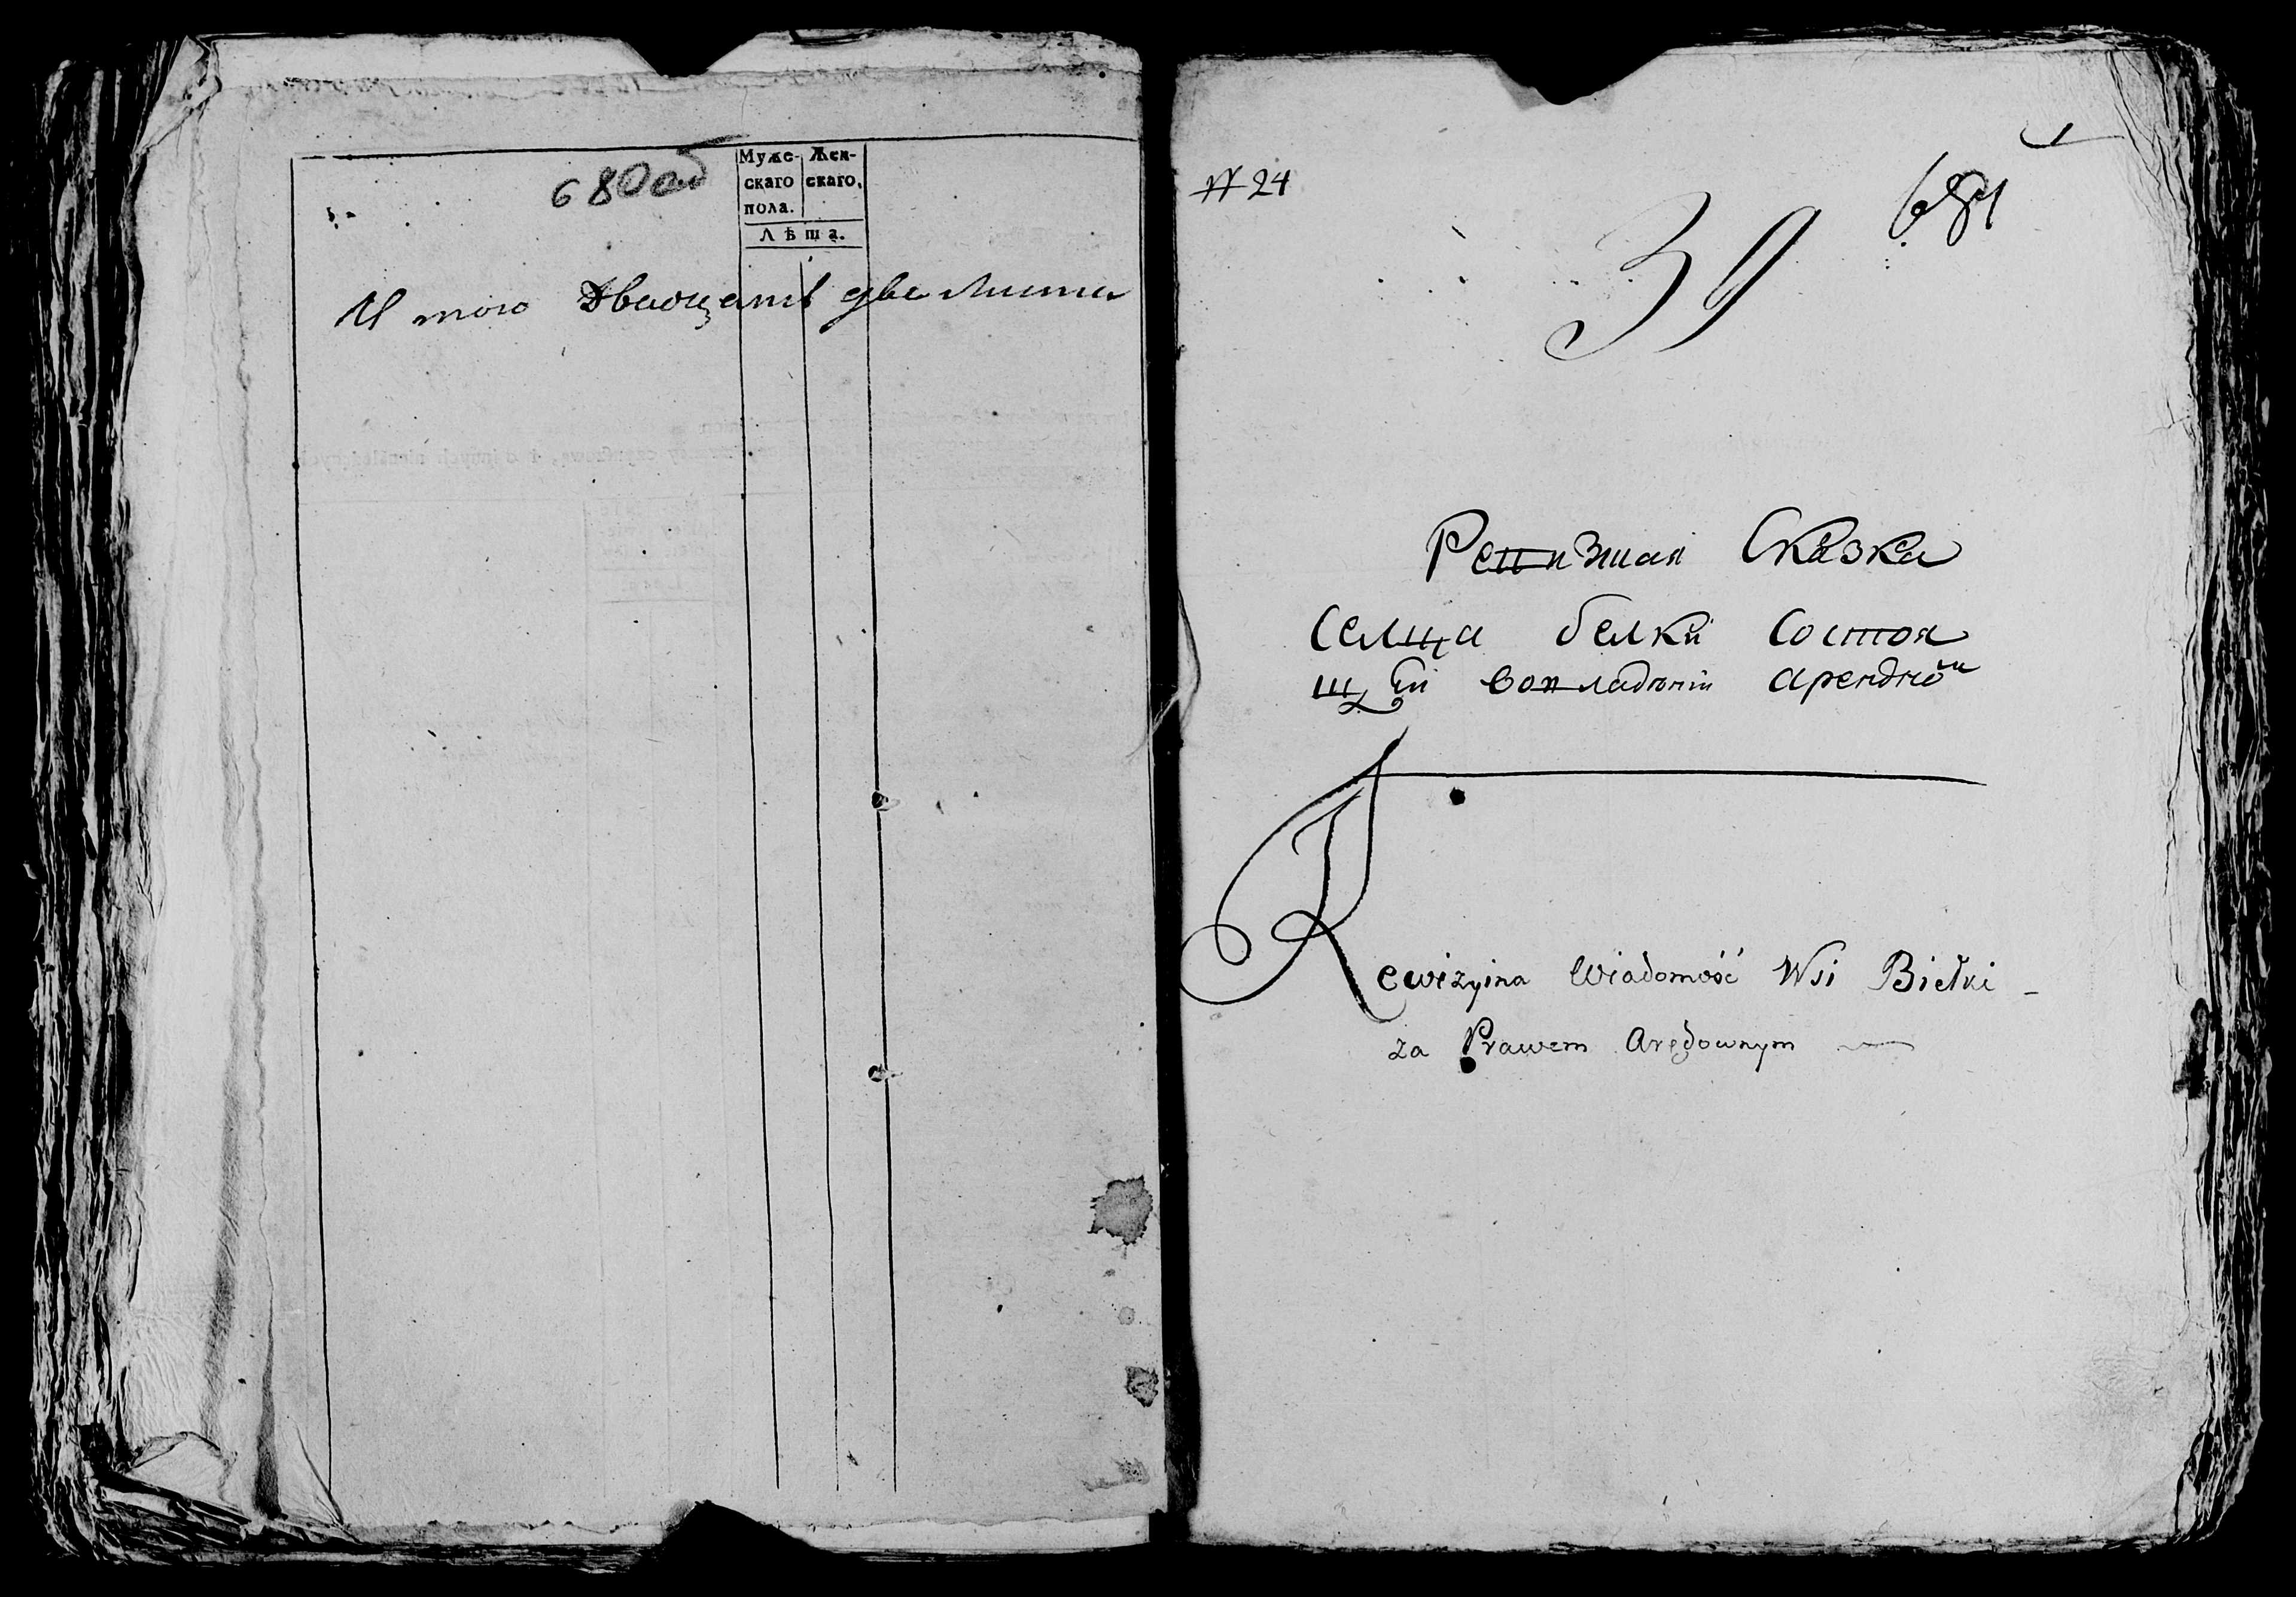 680об
Муже- Жен-
скаго скаго,
пола.
Лѣта.
И того Двацать два листа
№ 24
1
681
39
Ревизная Сказка
Селца белки Состоя
щей вовладении арендной
Rewizyina Wiadomość Wsi Biełki
za Prawem Arędownym